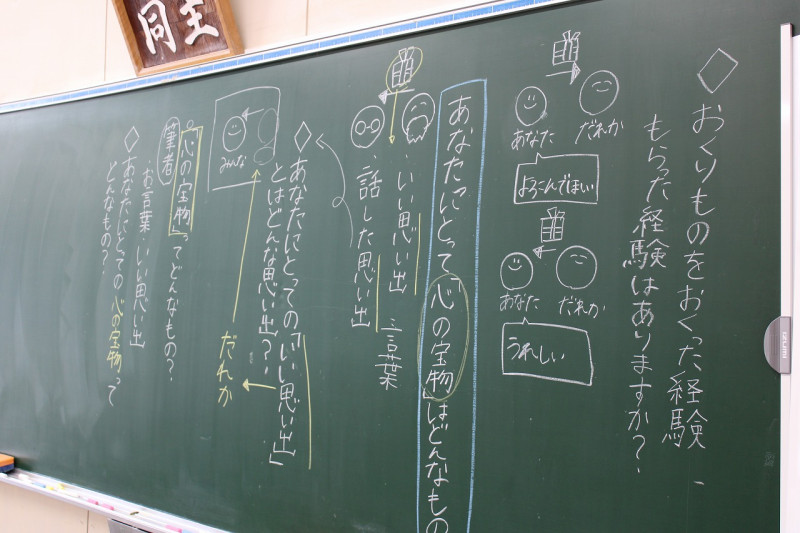 ◇おくりものをおくった経験、
もらった経験はありますか？
あなた
だれか
よろこんでほしい
あなた
だれか
うれしい
あなたにとって「心の宝物」はどんなもの
・いい思い出
・話した思い出
言葉
◇あなたにとっての「いい思い出」
とはどんな思い出？
だれか
みんな
「心の宝物」ってどんなもの？
筆者
・お言葉・いい思い出
◇あなたにとっての心の宝物って
どんなもの？
同